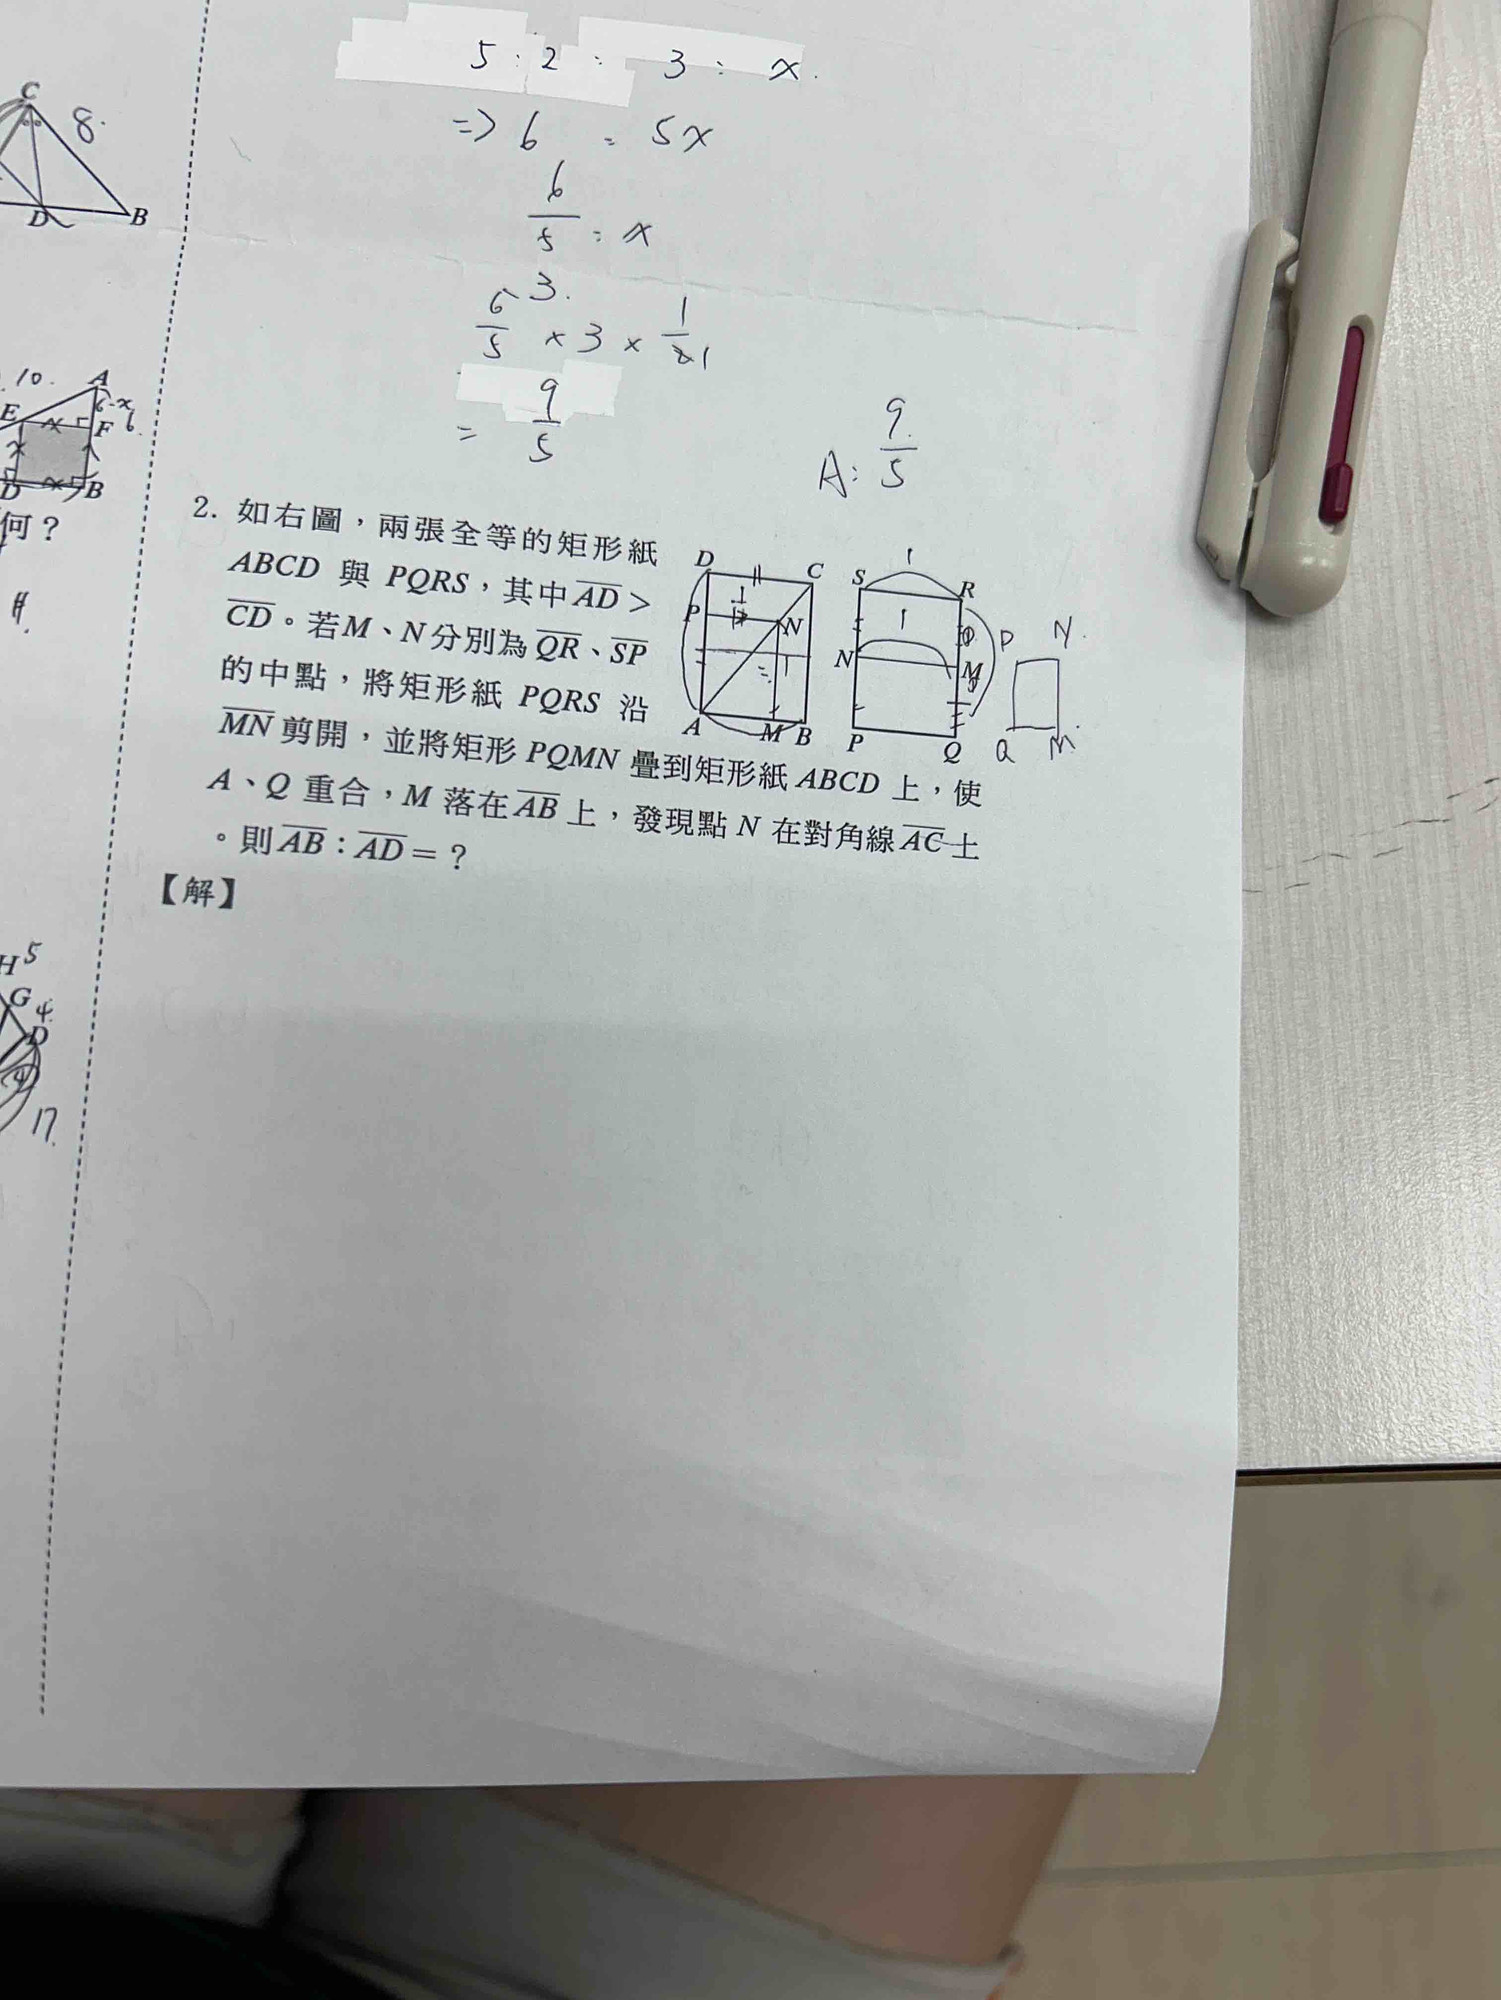 5 : 2 : 3 : x.
=> 6 = 5x
6/5 = x
6/5 × 3 × 1/21
3.
= 9/5
A: 9/5
C
8.
D
B
10.
A
6-x
6.
E
x
F
x
D
x
B
何？
2. 如右圖，兩張全等的矩形紙
ABCD 與 PQRS，其中AD >
CD。若M、N分別為 QR、SP
的中點，將矩形紙 PQRS 沿
MN 剪開，並將矩形 PQMN 疊到矩形紙 ABCD 上，使
A、Q 重合，M 落在AB上，發現點 N 在對角線AC上
。則AB：AD＝？
D
C
P
N
A
M
B
S
1
R
1
N
M
P
Q
P
N.
Q
M.
【解】
H
5
G
4
D
17.